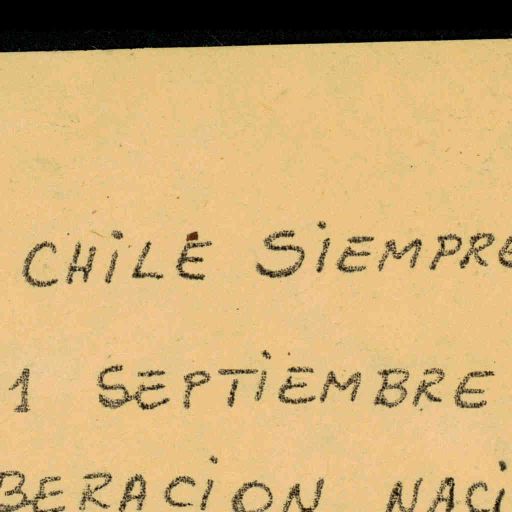 CHiLE SiEMPRE
1 SEPTiEMBRE
BERACiON NACi